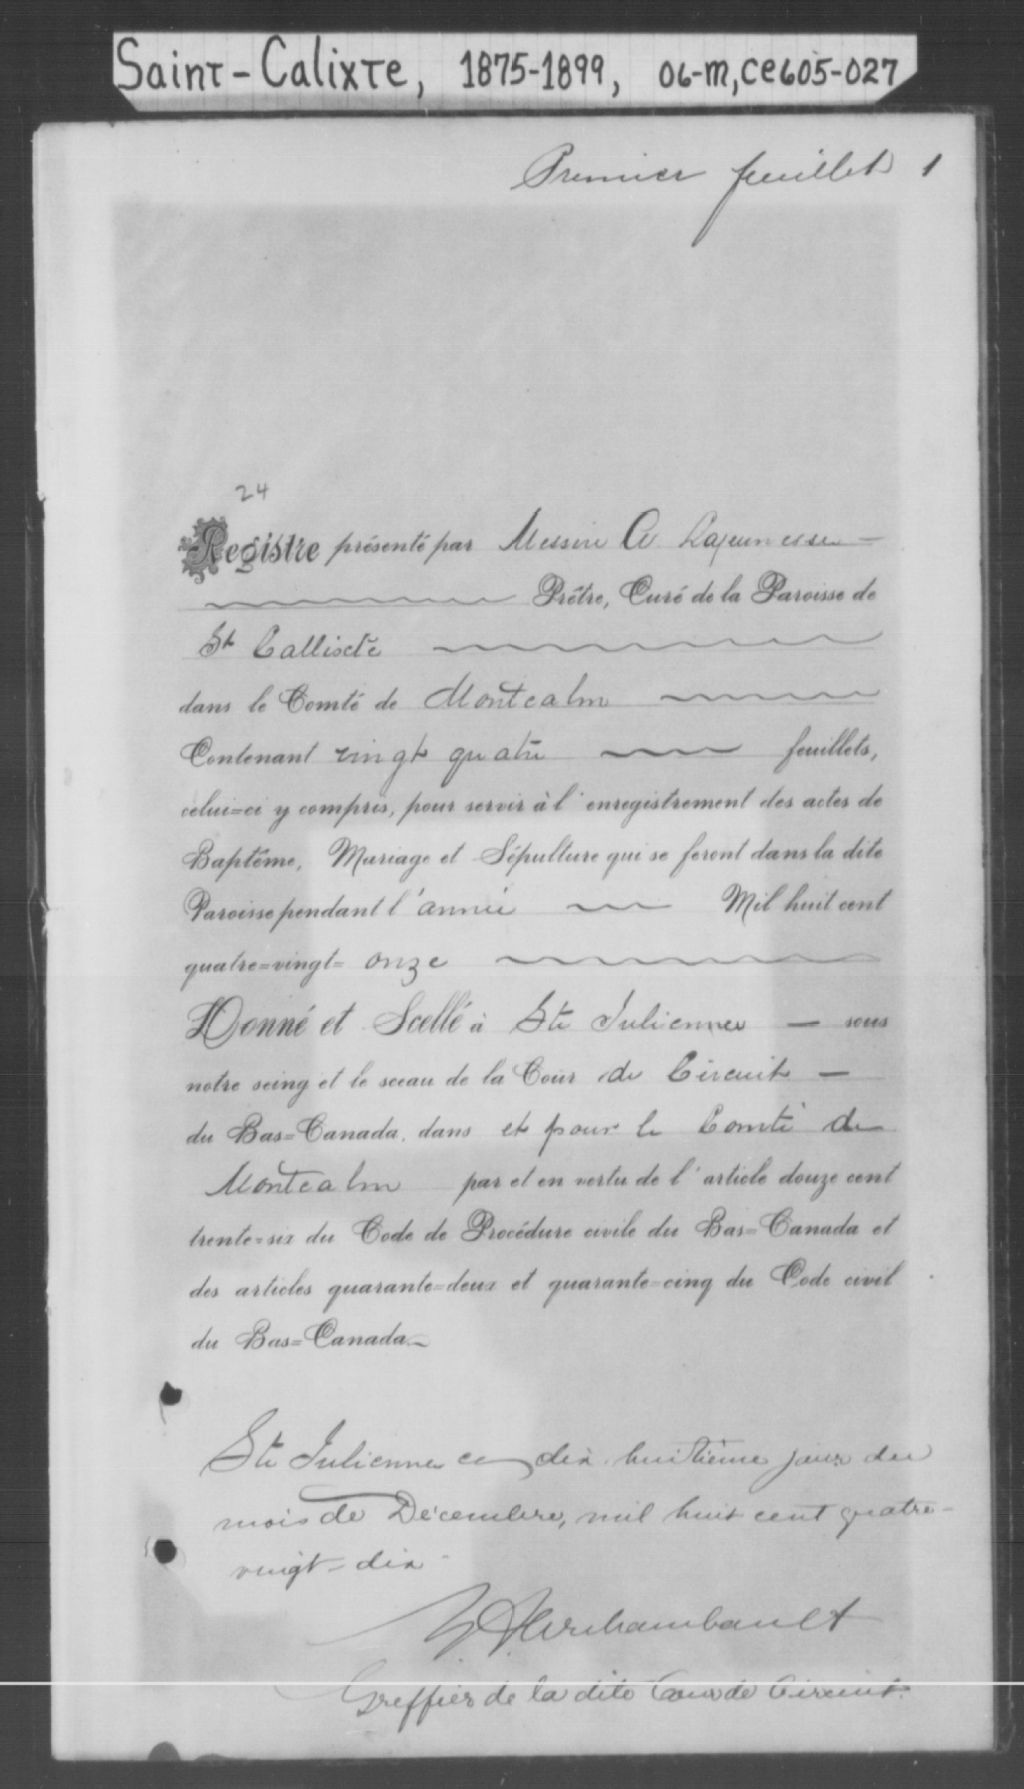 Saint-Calixte, 1875-1899, 06-M,CE605-027
Premier feuillet 1
24
Registre présenté par Messire A. Lajeunesse
Prêtre, Curé de la Paroisse de
St Callixte
dans le Comté de Montcalm
Contenant vingt quatre feuillets,
celui=ci y compris, pour servir à l'enregistrement des actes de
Baptême, Mariage et Sépulture qui se feront dans la dite
Paroisse pendant l'année Mil huit cent
quatre=vingt= onze
Donné et Scellé à Ste Julienne — sous
notre seing et le sceau de la Cour de Circuit —
du Bas=Canada, dans et pour le Comté de
Montcalm par et en vertu de l'article douze cent
trente=six du Code de Procédure civile du Bas=Canada et
des articles quarante=deux et quarante=cinq du Code civil
du Bas=Canada
Ste Julienne ce dix huitième jour du
mois de Décembre, mil huit cent quatre-
vingt-dix
Archambault
Greffier de la dite Cour de Circuit.